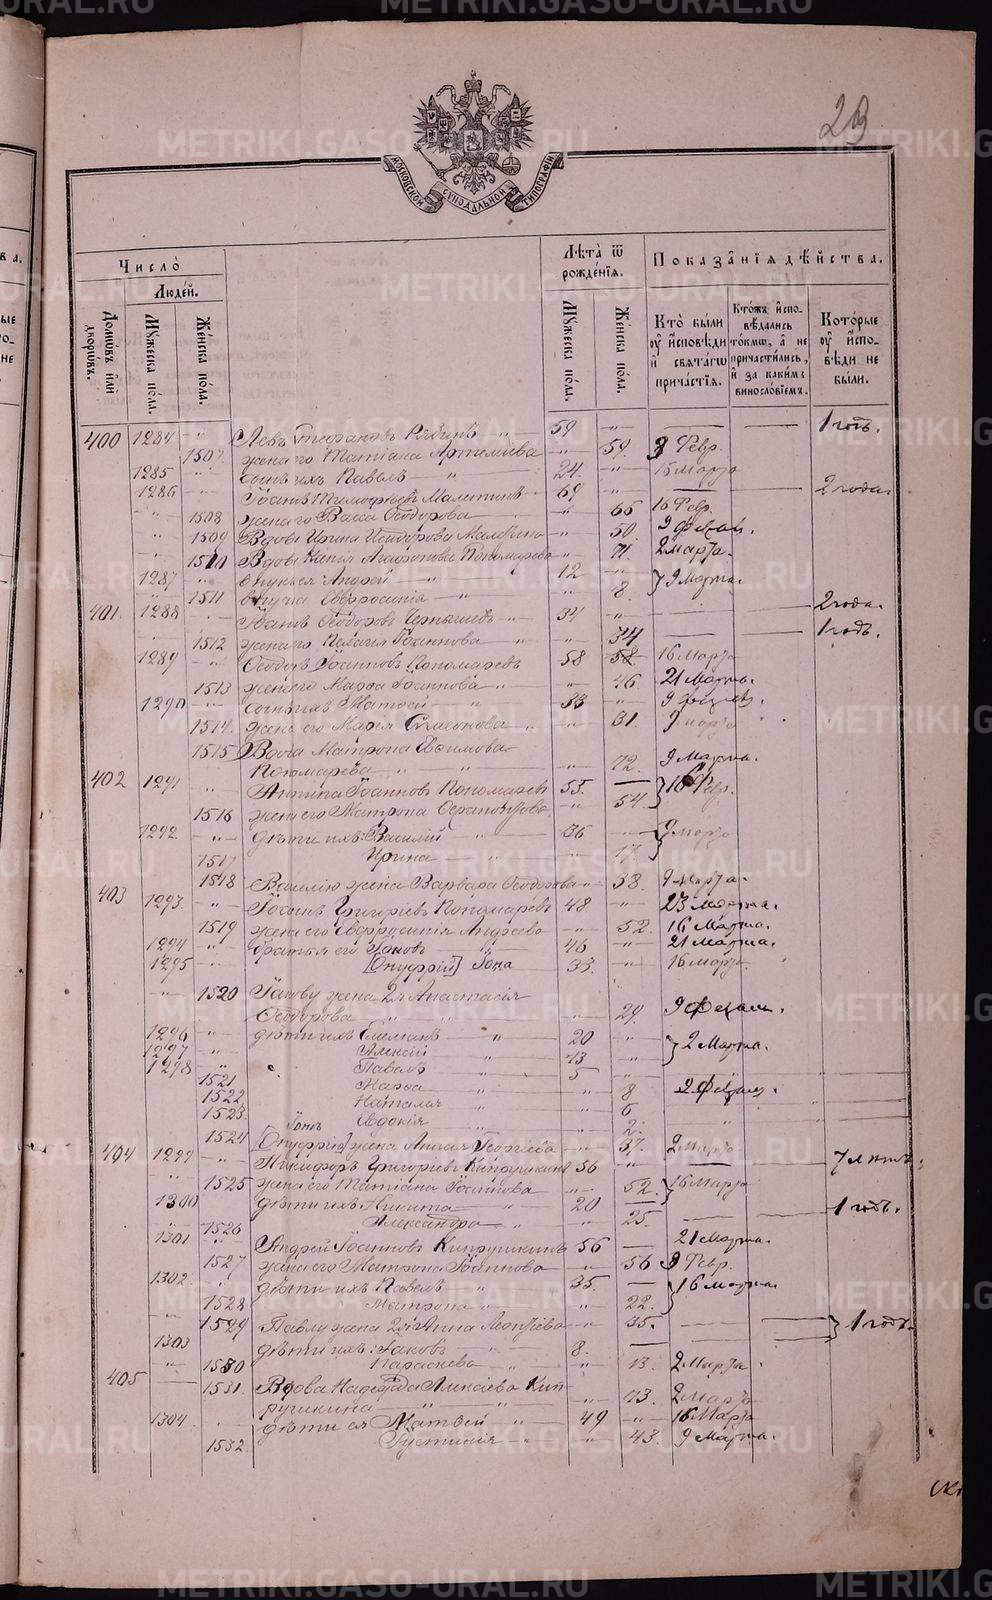 23
МОСКОВСКОЙ СУНОДАЛЬНОЙ ТИПОГРАФІИ
Число̀
Людє́й.
Домѡ́въ и҆лѝ дворѡ́въ.
Мꙋ́жеска по́ла.
Же́нска по́ла.
Лѣ̑та ѿ рожде́нїѧ.
Мꙋ́жеска по́ла.
Же́нска по́ла.
Показа̑нїѧ дѣ́йства.
Кто̀ бы́ли оу҆ и҆сповѣди и҆ свѧта́гѡ причастїѧ.
Кто́жъ и҆спо-вѣдались то́кмѡ, а҆ не причасти́лись, и҆ за каки́мъ винослѡ́вїемъ.
Кото́рые оу҆ и҆спо-вѣди не бы́ли.
400 1284 " Левъ Стефановъ Рябинъ " 59 " — — 1 годъ.
1507 жена его Татіана Артемьева " 59. 8 Февр.
1285 " сынъ ихъ Павелъ " 24 " 15 Марта
1286 " Іоаннъ Тимофѣевъ Малыгинъ 69 " — 2 года.
1508 жена его Васса Ѳеодорова " 65 16 Февр.
1509 Вдова Ирина Исидорова " 50. 9 февр.
1510 Вдова Агафонова Пономарева " 71. 2 марта.
1287 " внукъ ея Андрей " 12 " } 9 Марта.
1511 внучка Евфросинія " " 8.
401. 1288 " Іоаннъ Ѳеодоровъ Чернышевъ " 34 " — — 2 года.
1512 жена его Пелагія Іоаннова " " 34 — — 1 годъ.
1289 " Ѳеодотъ Іоанновъ Пономаревъ 58 58 16 Марта
1513 жена его Марѳа Іоаннова " " 46 21 Марта.
1290 " сынъ ихъ Матѳей " 33 " 9 февр.
1514. жена его Марія Симеонова " " 31. 9 марта
1515 Вдова Матрона Евѳимова
Пономарева " " " 72. 9 Марта.
402 1291 " Іоанновъ Пономаревъ 55. — } 16 Февр.
1516 жена его Матрона " 54
1292 " дѣти ихъ: Василій " 36 " } 9 марта
1517 Ирина " 17.
1518 Василію жена Варвара Ѳеодорова " 38. 9 Марта.
403 1293. " Іосифъ Григорьевъ Пономаревъ 48 " 23 Марта.
1519 жена его Евфросинія Андреева " 52. 16 Марта.
1294 " братья его Іаковъ " 46 " 21 Марта.
1295 " [Онуфрій] Іона 33. " 16 марта.
1520 Іакову жена 2я Анастасія
Ѳеодорова " " " 29. 9 февр.
1296 " дѣти ихъ " 20 " } 2 Марта.
1297 " Алексій " 13 "
1298 " Павелъ " 5 "
1521 Марѳа " 8 2 февр.
1522 Наталія " 6
1523 Евдокія " 2.
Іонѣ
1524 [Онуфрію] жена Георгіева " 37. 2 Марта
404 1299 " Никифоръ Григорьевъ Кипрушкинъ 56 " — 7 лѣтъ.
1525 жена его Татіана Іоаннова " 52. } 16 Марта
1300 " дѣти ихъ Никита " 20 —
1526 Александра " " 25. — — 1 годъ.
1301 " Андрей Іоанновъ Кипрушкинъ 56 — 21 Марта.
1527 жена его Матрона Іоаннова " 56 8 Февр.
1302. " дѣти ихъ Павелъ " 35. — } 16 Марта.
1528 Матрона " " 22.
1529 Павлу жена 2я Анна Леонтьева " 35. — — } 1 годъ.
1303 дѣти ихъ: Іаковъ " 8. —
1530 Параскева " " 13. 2 Марта.
405 — 1531. Вдова Надежда Алексіева Кип-
рушкина " " " 73. 2 Марта
1304. " дѣти ея Матѳей " 49 " 16 Марта
1532. Іустинія " " 43. 9 Марта.
METRIKI.GASO-URAL.RU